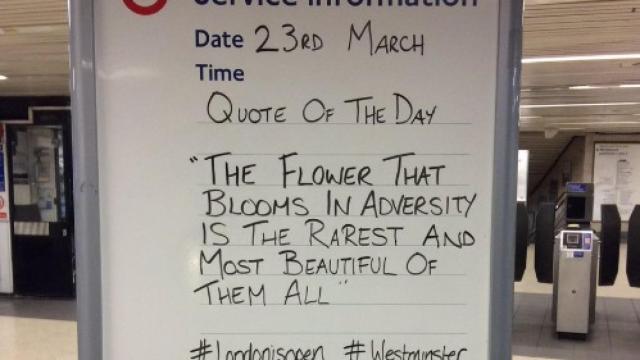 Service Information
Date 23RD MARCH
Time
QUOTE OF THE DAY
"THE FLOWER THAT
BLOOMS IN ADVERSITY
IS THE RAREST AND
MOST BEAUTIFUL OF
THEM ALL"
#Londonisopen #Westminster